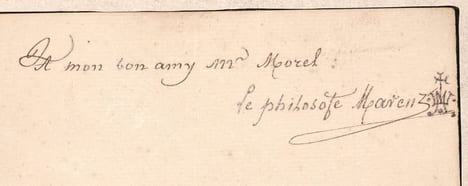 A mon bon amy Mr Morel :
le philosofe Marenz